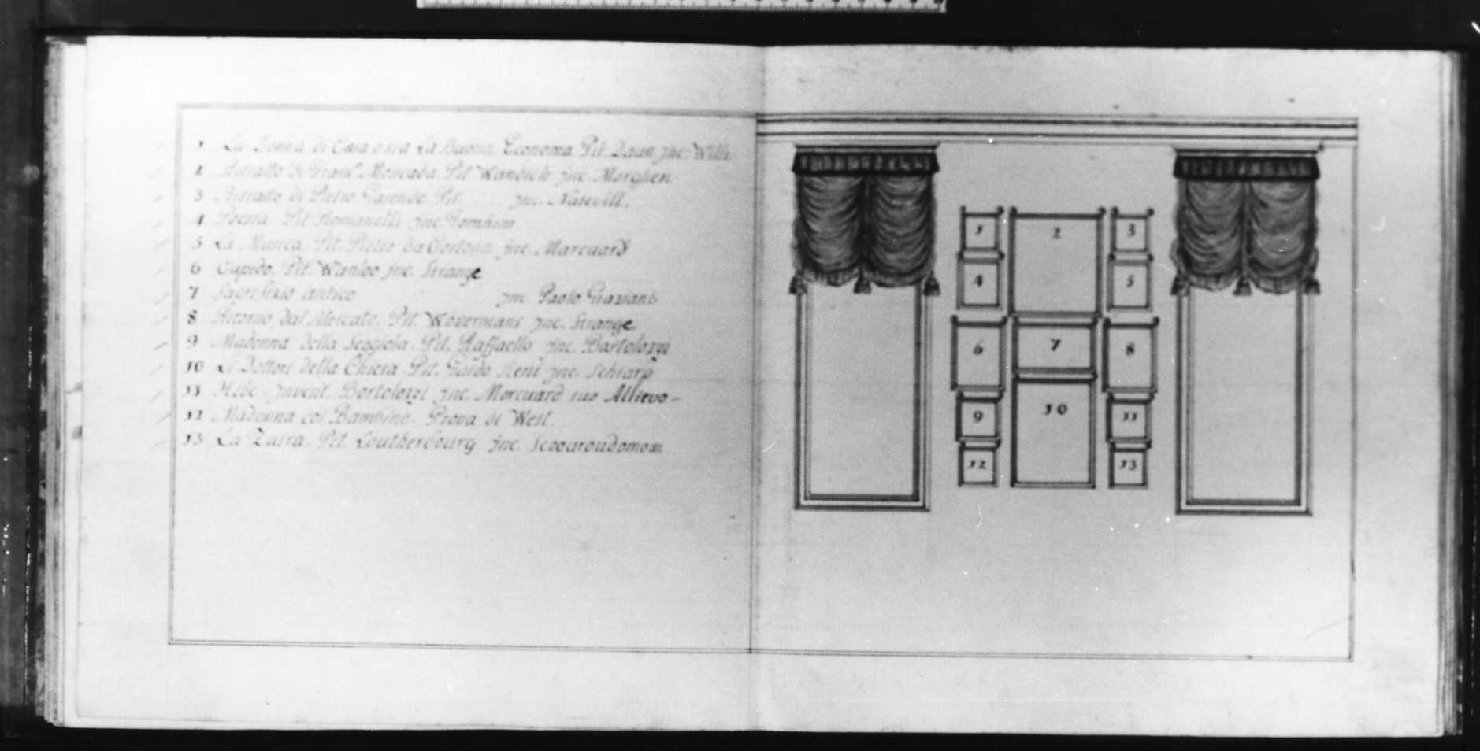 1 La Donna di Casa o sia La Buona Economa Pit. Daun jnc. Wille
2 Ritratto di Franc.º Moncada Pit Wandich jnc. Morghen
3 Ritratto di Pietro Pit. jnc. Natevill.
4 Poesia Pit. Romanelli jnc. Tomkins
5 La Musica Pit. Pietro da Cortona jnc. Marcuard
6 Cupido. Pit. Wanloo jnc. Strange
7 Sacrifizio antico jnc. Paolo Graziani
8 Ritorno dal Mercato. Pit. Wovermans jnc. Strange
9 Madonna della Seggiola. Pit. Raffaello jnc. Bartolozzi
10 Li Dottori della Chiesa. Pit. Guido Reni jnc. Scharp
11 Hebe jnvent. Bartolozzi jnc. Marcuard suo Allievo-
12 Madonna col Bambino. Prova di West.
13 La Zaira. Pit. Loutherbourg jnc.
1
2
3
4
5
6
7
8
10
9
11
12
13